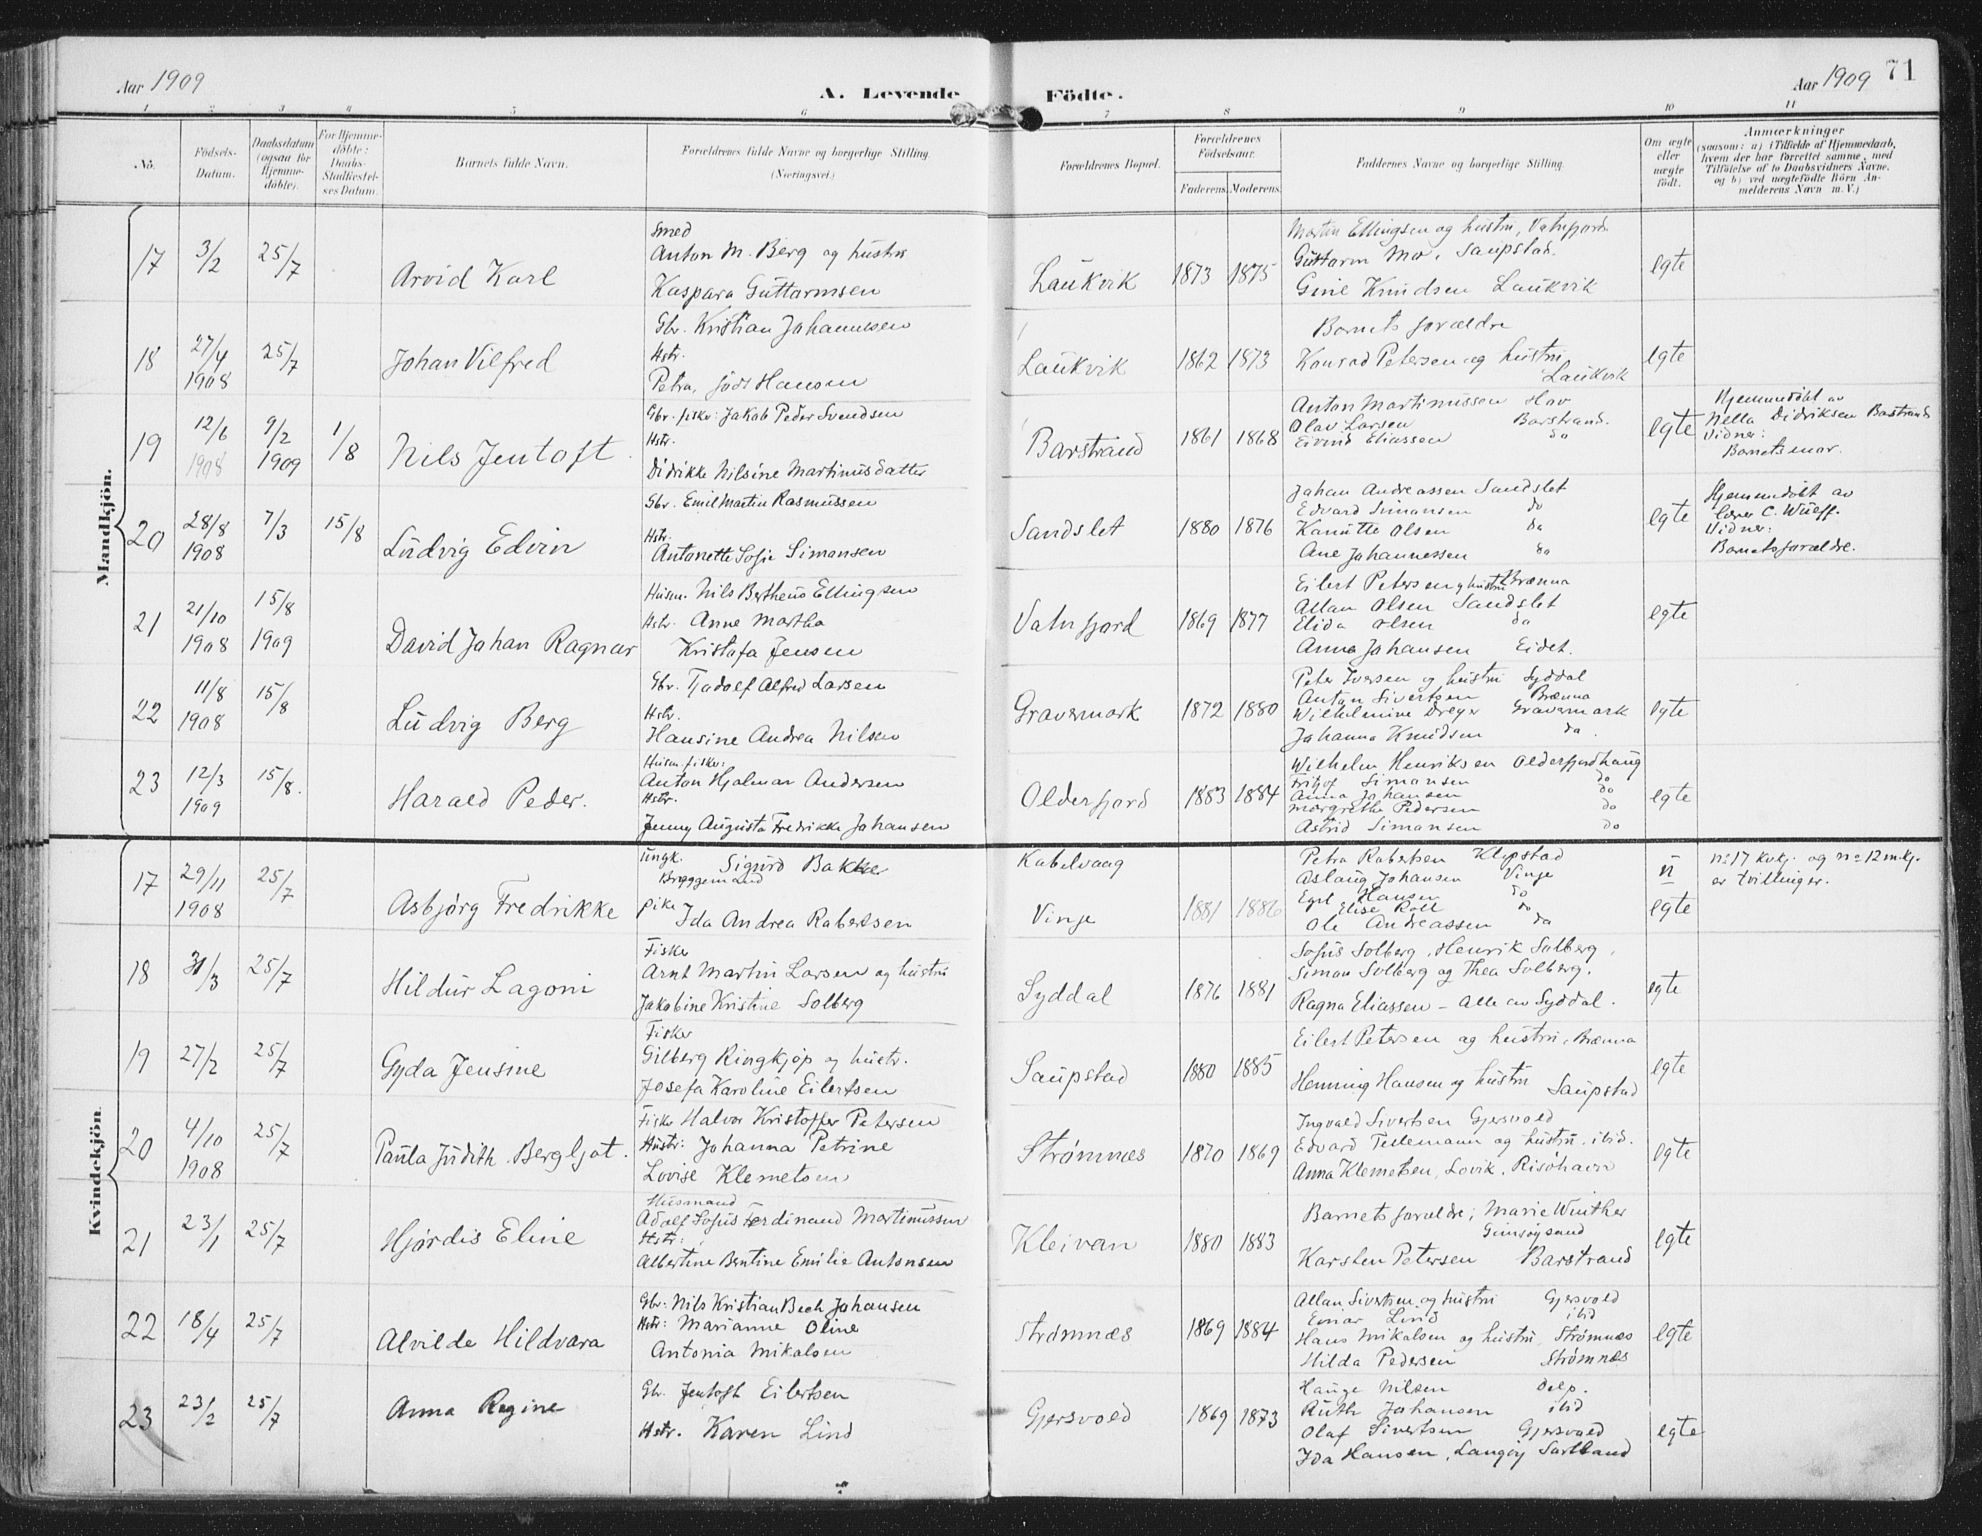 Aar 1909
A. Levende Födte.
Aar 1909 71
1 2 3 4 5 6 7 8 9 10 11
No. Födsels-Datum. Daabsdatum (ogsaa for Hjemmedöbte). For Hjemmedöbte: Daabs-Stadfæstelses Datum. Barnets fulde Navn. Forældrenes fulde Navne og borgerlige Stilling. (Næringsvei.) Forældrenes Bopæl. Forældrenes Födselsaar. Faderens. Moderens. Faddernes Navne og borgerlige Stilling. Om ægte eller uægte födt. Anmærkninger (saasom: a) i Tilfælde af Hjemmedaab, hvem der har forrettet samme, med Tilföielse af to Daabsvidners Navne, og b) ved uægtefödte Börn Anmelderens Navn m. V.)
Mandkjön.
17 3/2 25/7 Arvid Karl
Smed
Anton M. Berg og hustru
Kaspara Guttormsen
Laukvik 1873 1875
Martin Ellingsen og hustru, Vatnfjord
Guttorm Mo, Saupstad.
Gine Knudsen Laukvik
egte
18 27/4 1908 25/7 Johan Vilfred
Gbr. Kristian Johannesen
Hstr.
Petra, født Hansen
Laukvik 1862 1873
Barnets forældre
Konrad Petersen og hustru
Laukvik
egte
19 12/6 1908 9/2 1909 1/8 Nils Jentoft
Gbr. fisker: Jakob Peder Svendsen
Hstr.
Didrikke Nilsine Martinusdatter
Barstrand 1861 1868
Anton Martinussen Hov
Olav Larsen Barstrand.
Eivind Eliassen do
egte
Hjemmedøbt av
Nella Didriksen Barstrand
Vidner:
Barnets mor.
20 28/8 1908 7/3 15/8 Ludvig Edvin
Gbr. Emil Martin Rasmussen
Hstr.
Antonette Sofie Simonsen
Sandslet 1880 1876
Johan Andreassen Sandslet
Edvard Simonsen do
Kanutte Olsen do
Ane Johannessen do
egte
Hjemmedøbt av
lærer C. Wulff.
Vidner:
Barnets forældre.
21 21/10 1908 15/8 1909 David Johan Ragnar
Husm. Nils Bertheus Ellingsen
Hstr. Anne Martha
Kristofa Jensen
Vatnfjord 1869 1877
Eilert Petersen og hustru Brænna
Allan Olsen Sandslet
Elida Olsen do
Anna Johansen Eidet.
egte
22 11/8 1908 15/8 Ludvig Berg
Gbr. Tjodolf Alfred Larsen
Hstr.
Hansine Andrea Nilsen
Gravermark 1872 1880
Peter Iversen og hustru Syddal
Anton Sivertsen Brænna
Wilhelmine Dreyer Gravermark
Johanna Knudsen do.
egte
23 12/3 1909 15/8. Harald Peder.
Husm. fisker:
Anton Hjalmar Andersen
Hstr.
Jenny Augusta Fredrikke Johansen
Olderfjord 1883 1884
Wilhelm Henriksen Olderfjordhaug
Fritjof Simonsen do
Anna Johansen do
Margrethe Pedersen do
Astrid Simonsen do
egte
Kvindekjön.
17 29/11 1908 25/7 Asbjørg Fredrikke
ungk. Sigurd Bakke
Bryggemand
pike Ida Andrea Robertsen
Kabelvaag
Vinje 1881 1886
Petra Robertsen Klepstad
Aslaug Johansen Vinje
Egil Hansen do
Elise Roll do
Ole Andreassen do
u
egte
no 17 kvkj. og no 12 m.kj.
er tvillinger.
18 31/3 25/7 Hildur Lagoni
Fisker
Arnt Martin Larsen og hustru
Jakobine Kristine Solberg
Syddal 1876 1881
Sofus Solberg, Henrik Solberg,
Simon Solberg og Thea Solberg.
Ragna Eliassen - alle av Syddal.
egte
19 27/2 25/7 Gyda Jensine
Fisker
Gilberg Ringkjøp og hustr.
Josefa Karoline Eilertsen
Saupstad 1880 1885
Eilert Petersen og hustru, Brænna
Henning Hansen og hustru Saupstad
egte
20 4/10 1908 25/7 Paula Judith Bergljot.
Fisker Halvor Kristoffer Petersen
Hustr: Johanna Petrine
Lovise Klemetsen
Strømnæs 1870 1869
Ingvald Sivertsen Gjersvold
Edvard Tellemann og hustru. ibid.
Anna Klemetsen, Lovik. Risøhavn
egte
21 23/1 25/7 Hjørdis Eline
Husmand
Adolf Sofus Ferdinand Martinussen
Hstr:
Albertine Bentine Emilie Antonsen
Kleivan 1880 1883
Barnets forældre; Marie Winther
Gimsøysand
Karsten Petersen Barstrand
egte
22 18/4 25/7 Alvilde Hildvara
Gbr: Nils Kristian Bech Johansen
Hstr: Marianne Oline
Antonia Mikalsen
Strømnæs 1869 1884
Allan Sivertsen og hustru Gjersvold
Einar Lind ibid
Hans Mikalsen og hustru Strømnæs
Hilda Pedersen Strømnæs
egte
23 23/2 25/7 Anna Regine
Gbr. Jentoft Eilertsen
Hstr. Karen Lind
Gjersvold 1869 1873
Hauge Nilsen Delp.
Ruth Johansen ibid
Olaf Sivertsen Gjersvold
Ida Hansen, Langøy Sortland
egte